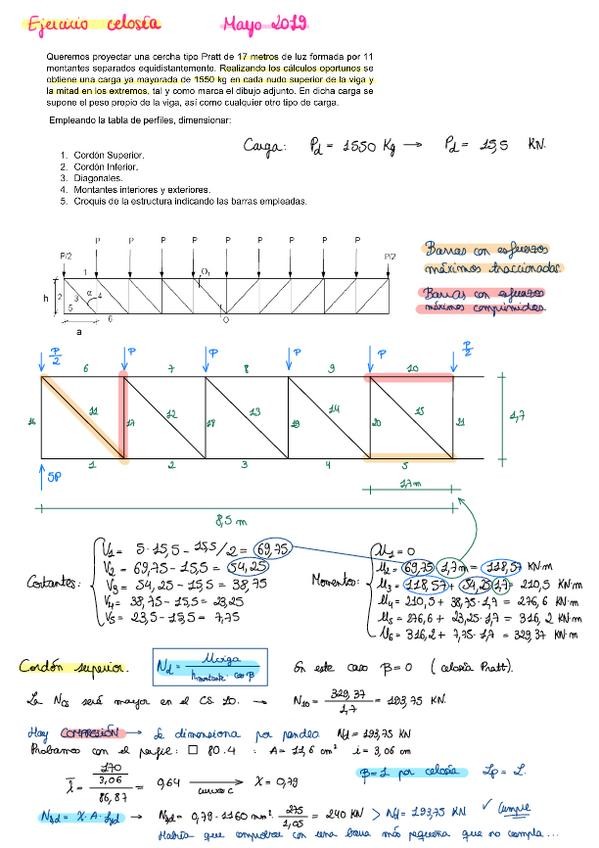 Ejercicio celosía Mayo 2019
Queremos proyectar una cercha tipo Pratt de 17 metros de luz formada por 11
montantes separados equidistantemente. Realizando los cálculos oportunos se
obtiene una carga ya mayorada de 1550 kg en cada nudo superior de la viga y
la mitad en los extremos, tal y como marca el dibujo adjunto. En dicha carga se
supone el peso propio de la viga, así como cualquier otro tipo de carga.
Empleando la tabla de perfiles, dimensionar:
Carga: Pd = 1550 Kg → Pd = 15,5 KN.
1. Cordón Superior.
2. Cordón Inferior.
3. Diagonales.
4. Montantes interiores y exteriores.
5. Croquis de la estructura indicando las barras empleadas.
P/2 P P P P P P P P P P/2
1 O₁
h 2 3 α 4
5 6 O
a
Barras con esfuerzos
máximos traccionadas
Barras con esfuerzos
máximos comprimidas
P/2 P P P P P/2
6 7 8 9 10
16 11 17 12 18 13 19 14 20 15 21 1,7
1 2 3 4 5
5P
1,7m
8,5 m
Cortantes:
V1 = 5·15,5 - 15,5/2 = 69,75
V2 = 69,75 - 15,5 = 54,25
V3 = 54,25 - 15,5 = 38,75
V4 = 38,75 - 15,5 = 23,25
V5 = 23,5 - 15,5 = 7,75
Momentos:
M1 = 0
M2 = 69,75 · 1,7m = 118,57 KN·m
M3 = 118,57 + 54,25·1,7 = 210,5 KN·m
M4 = 210,5 + 38,75·1,7 = 276,6 KN·m
M5 = 276,6 + 23,25·1,7 = 316,2 KN·m
M6 = 316,2 + 7,75·1,7 = 329,37 KN·m
Cordón superior. Nd = Mviga / hmontante · cos β En este caso β = 0 (celosía Pratt).
La Ncs será mayor en el CS 10. → N10 = 329,37 / 1,7 = 193,75 KN.
Hay COMPRESIÓN → Se dimensiona por pandeo Nd = 193,75 KN
Probamos con el perfil: □ 80.4 : A = 11,6 cm² i = 3,06 cm
λ̄ = (170 / 3,06) / 86,87 = 0,64 → curva C χ = 0,79 β = 1 por celosía Lp = L.
Nbd = χ·A·fyd → Nbd = 0,79 · 1160 mm² · 275 / 1,05 = 240 KN > Nd = 193,75 KN ✓ Cumple
Habría que comprobar con una barra más pequeña que no cumpla...